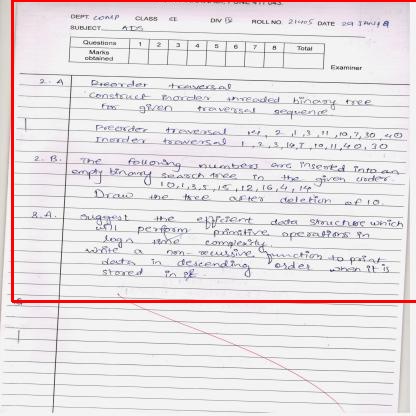 DEPT. COMP CLASS SE DIV ROLL NO. 21405 DATE
SUBJECT ADS
Questions 1 2 3 4 5 6 7 8 Total
Marks obtained
Examiner
2. A Preorder traversal
Construct inorder threaded binary tree
for given traversal sequence
Preorder traversal 14, 2, 1, 3, 11, 10, 7, 30, 40
Inorder traversal 1, 2, 3, 14, 7, 10, 11, 40, 30
2. B. The following numbers are inserted into an
empty binary search tree in the given order.
10, 1, 3, 5, 15, 12, 16, 4, 14
Draw the tree after deletion of 10.
3. A. suggest the efficient data structure which
will perform primitive operations in
logn time complexity.
write a non-recursive function to print
data in descending order when it is
stored in it.